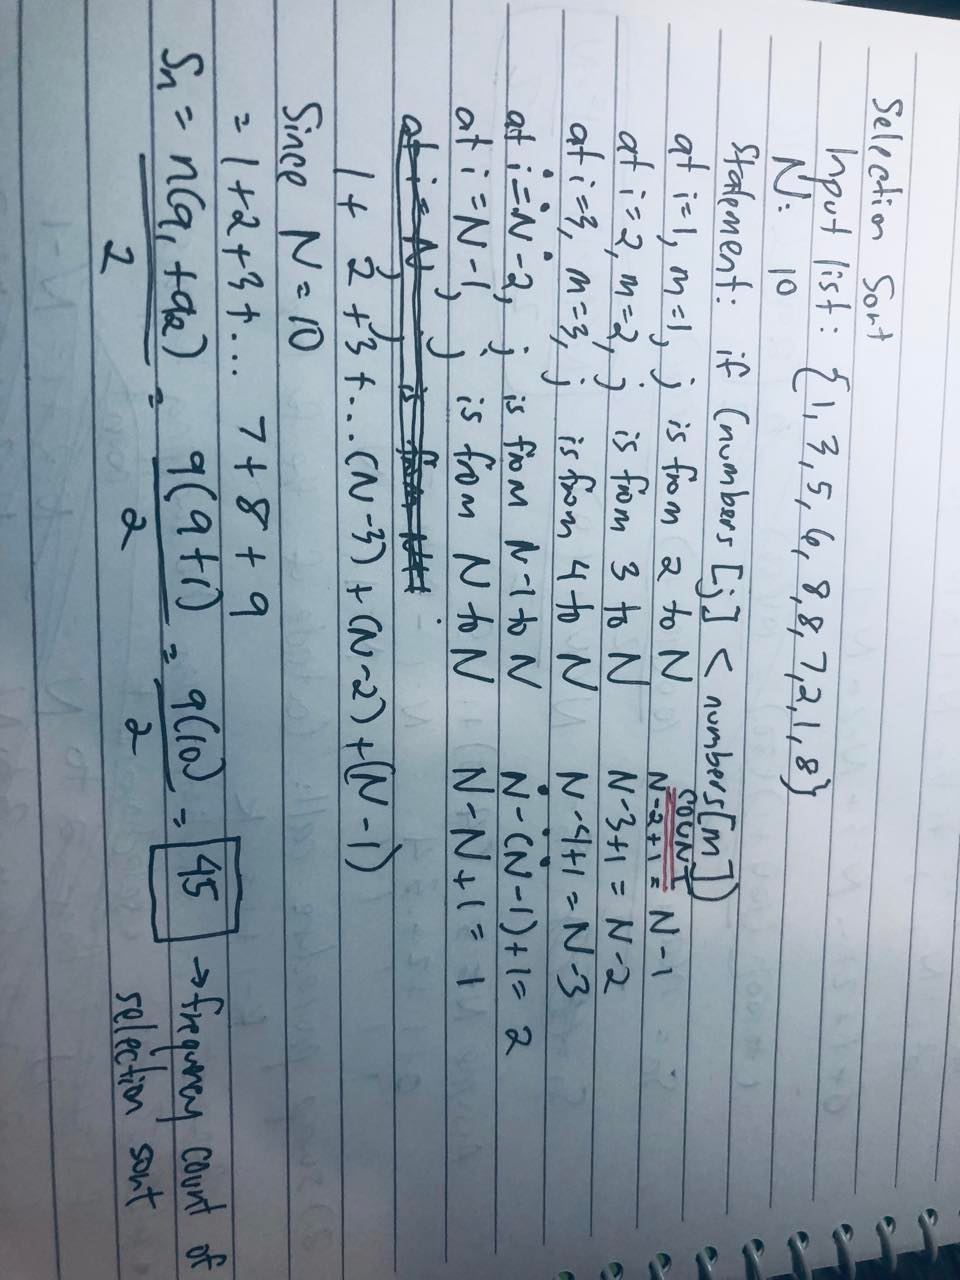 Selection Sort
Input list: {1, 3, 5, 6, 8, 8, 7, 2, 1, 8}
N: 10
Statement: if (numbers [j] < numbers[m])
COUNT
at i=1, m=1, j is from 2 to N N-2+1= N-1
at i=2, m=2, j is from 3 to N N-3+1= N-2
at i=3, m=3, j is from 4 to N N-4+1= N-3
at i=N-2, j is from N-1 to N N-(N-1)+1= 2
at i=N-1, j is from N to N N-N+1= 1
at i=N, j is from
1+ 2+3+...(N-3)+(N-2)+(N-1)
Since N=10
=1+2+3+... 7+8+9
Sn = n(a1+a2)/2 = 9(9+1)/2 = 9(10)/2 = 45 → frequency count of
selection sort